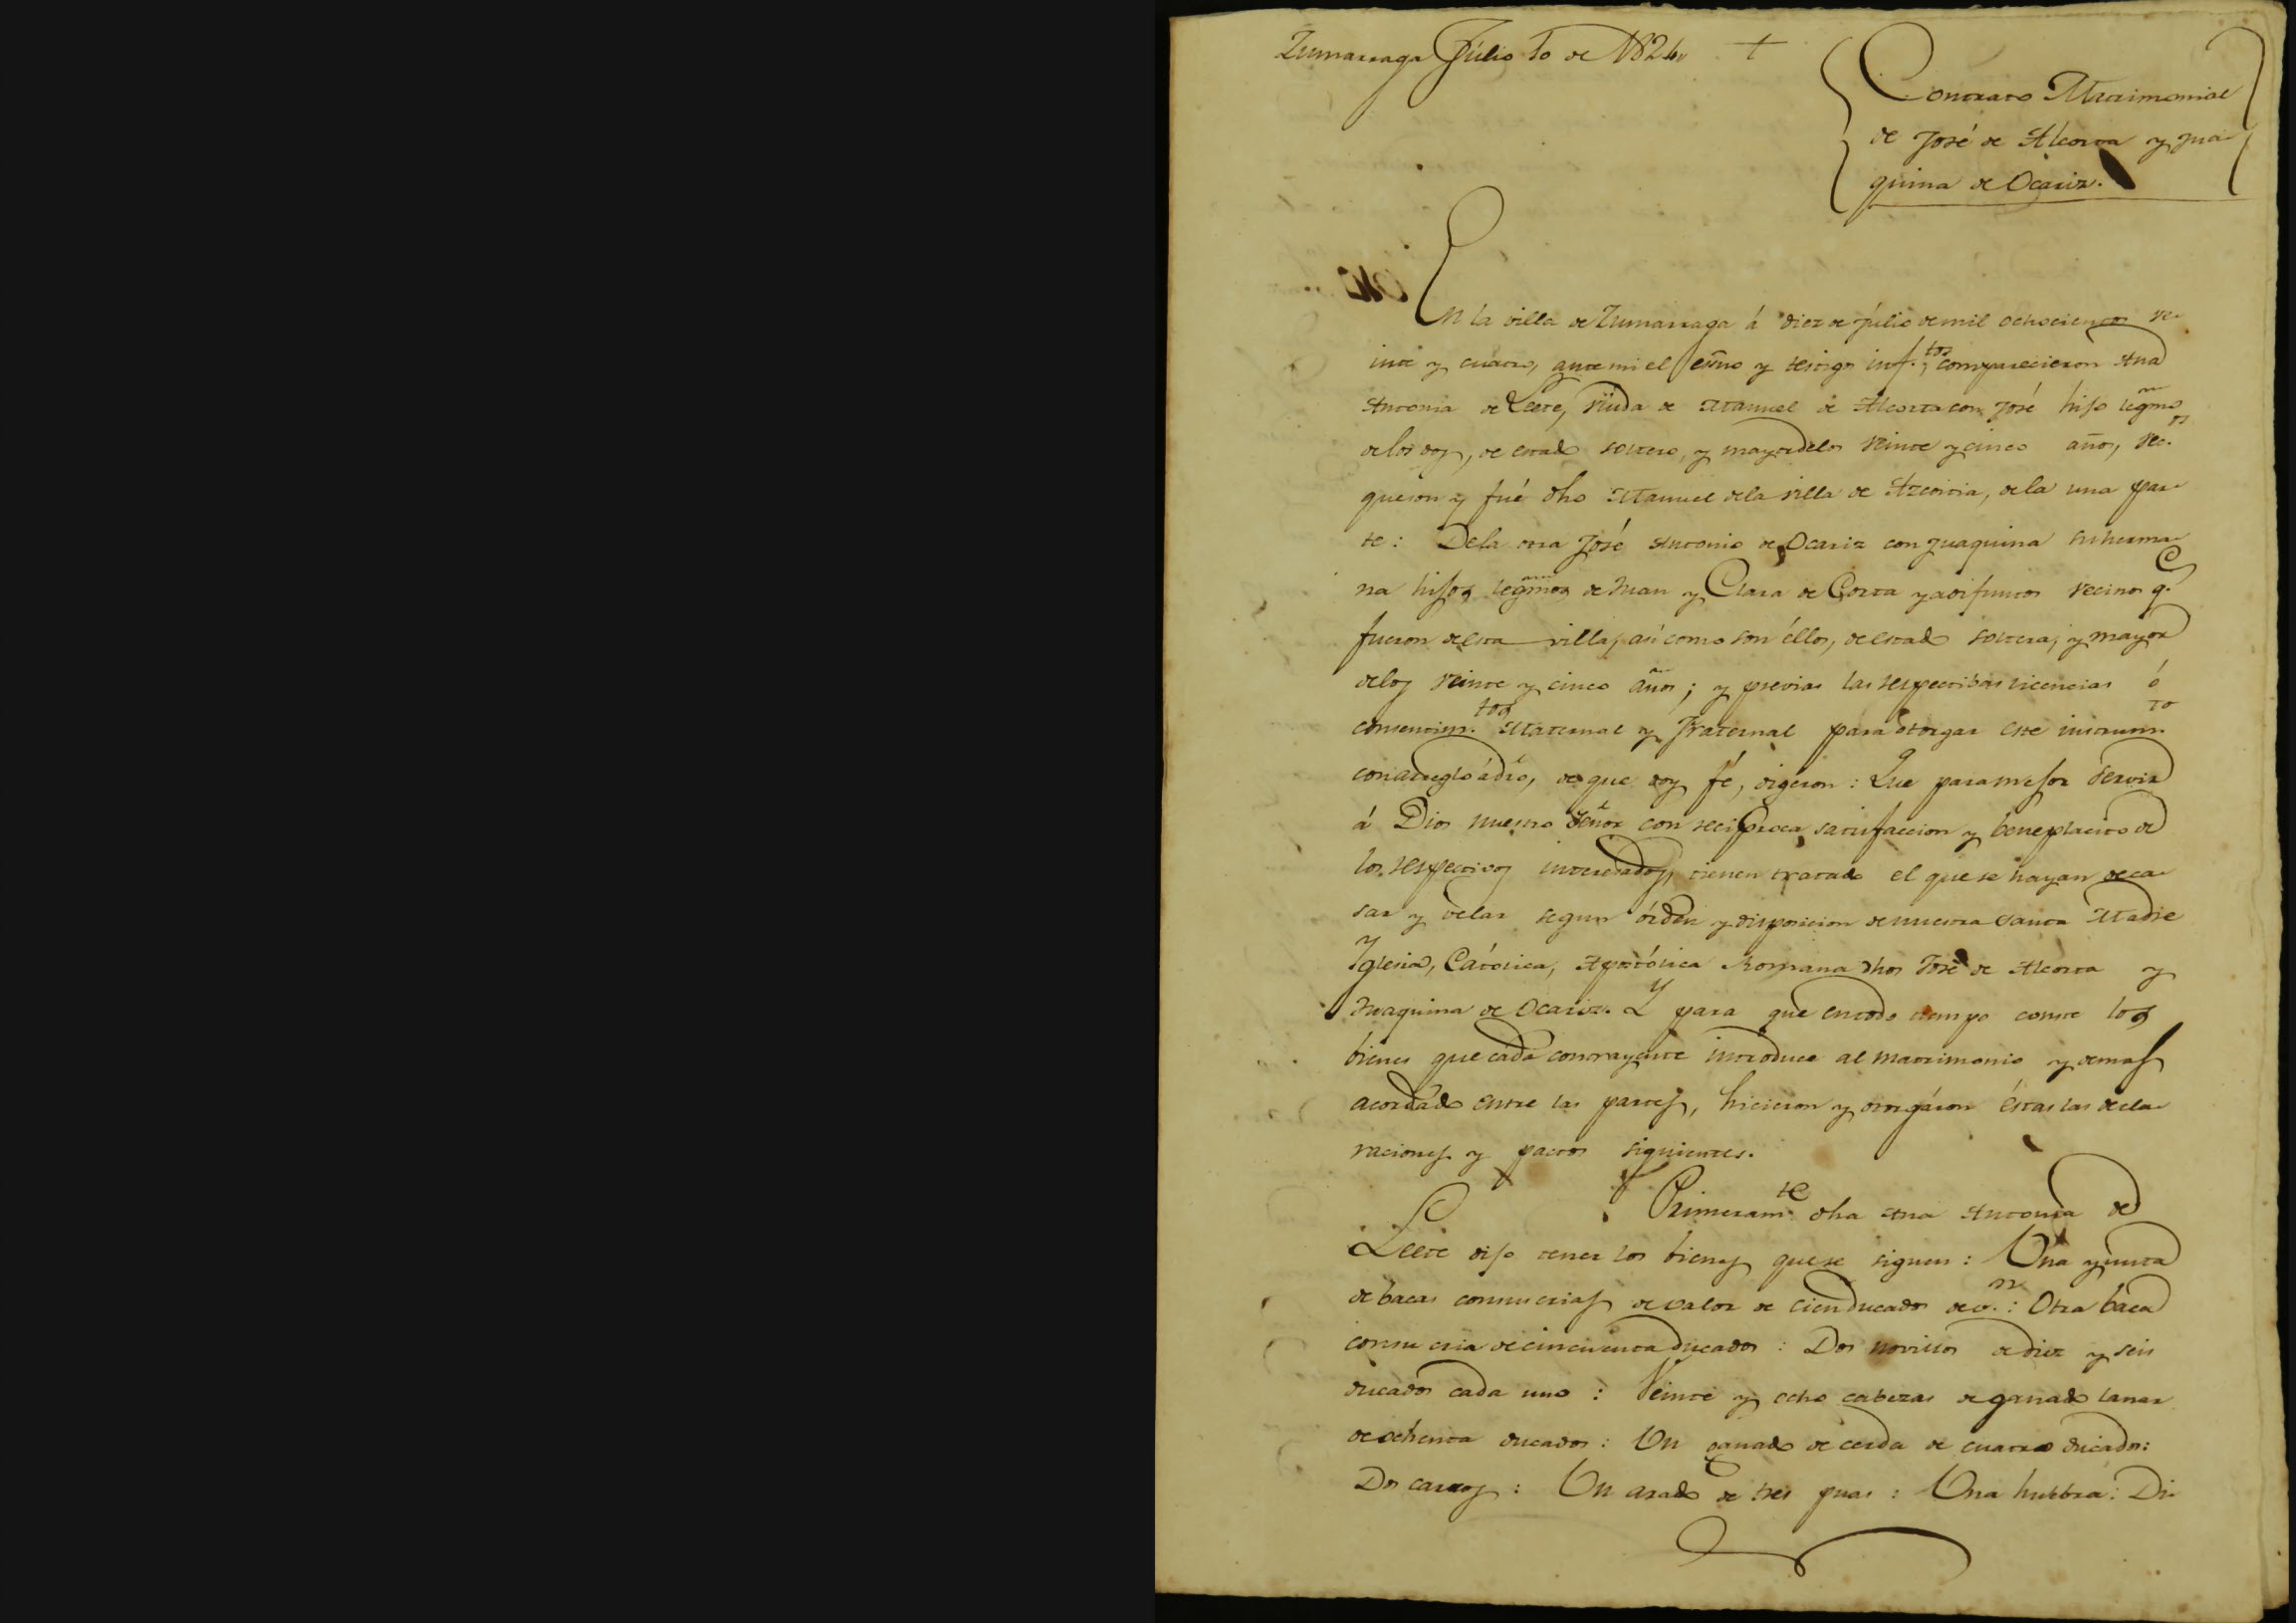 Zumarraga Júlio 10 de 1824 +
Contrato Matrimonial
de José de Alcorta y Jua
quina de Ocariz.
En la villa de Zumarraga á diez de júlio de mil ochocientos ve-
inte y cuatro, ante mi el esño y testigos inf.tos, comparecieron Ana
Antonia de Leete, viuda de Manuel de Alcorta con José hijo legmo
de los dos, de estado soltero, y mayor de los veinte y cinco años, vec.os
que son y fué dho Manuel de la villa de Azcoitia, de la una par-
te: De la otra José Antonio de Ocariz con Juaquina su herma-
na hijos legmos de Juan y Clara de Corta ya difuntos vecinos q.e
fueron de esta villa, asi como son éllos, de estado soltera, y mayor
de los veinte y cinco años; y previas las respectibas licencias ó
consentim.tos Maternal y Fraternal para otorgar este instrum.to
con arreglo á dro, de que doy fé, digeron: Que para mejor servir
á Dios nuestro Señor con reciproca satisfaccion y beneplacito de
los respectivos interesados, tienen tratado el que se hayan de ca-
sar y velar segun órden y disposicion de nuestra Santa Madre
Yglesia, Católica, Apostólica Romana dhos José de Alcorta y
Juaquina de Ocariz. Y para que en todo tiempo conste los
bienes que cada contrayente introduce al matrimonio y demas
acordado entre las partes, hicieron y otorgáron éstas las decla-
raciones y pactos siguientes.
Primeram.te dha Ana Antonia de
Leete dijo tener los bienes que se siguen: Una yunta
de bacas con sus crias de valor de cien ducados de v.n: Otra baca
con su cria de cincuenta ducados: Dos novillos de diez y seis
ducados cada uno: Veinte y ocho cabezas de ganado lanar
de ochenta ducados: Un ganado de cerda de cuatro ducados:
Dos carros: Un arado de tres puas: Una